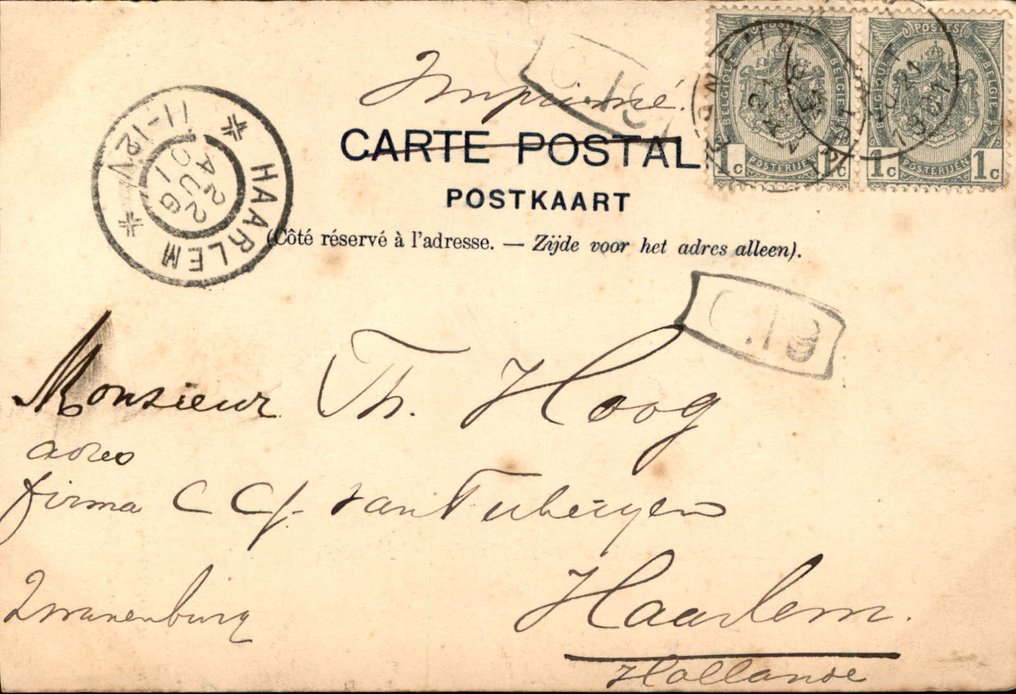 Imprimé.
CARTE POSTALE
POSTKAART
(Côté réservé à l'adresse. — Zijde voor het adres alleen).
POSTES
BELGIQUE BELGIË
1c 1c
POSTERIJEN
POSTES
BELGIQUE BELGIË
1c 1c
POSTERIJEN
1901
HAARLEM
11-12V
22 AUG 01
C.19
C.19
Monsieur Th. Hoog
adres
firma C G. van Tubergen
Zwanenburg
Haarlem.
Hollande